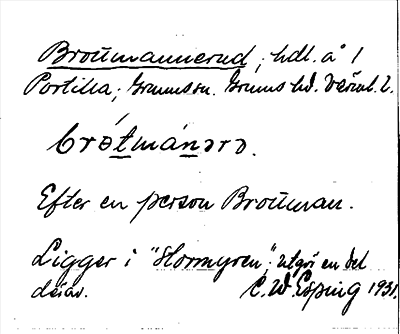 Brottmannerud, hdl. å 1
Portilla, Grums sn. Grums hd. Värml. l.
bròtmánərə.
Efter en person Brottman.
Ligger i "Stormyren"; utgör en del
därav. C.W. Esping 1931.